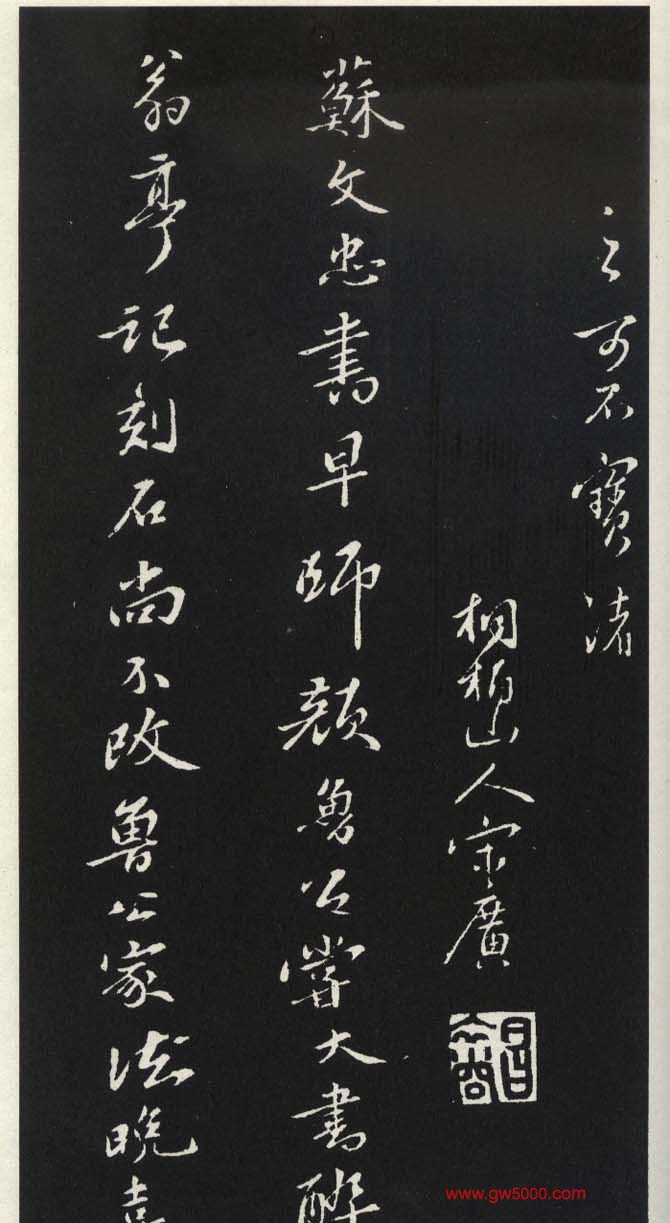 之可不寶諸
桐柏山人宋廣
昌裔
蘇文忠書早師顏魯公嘗大書醉
翁亭記刻石尚不改魯公家法晚喜
www.gw5000.com